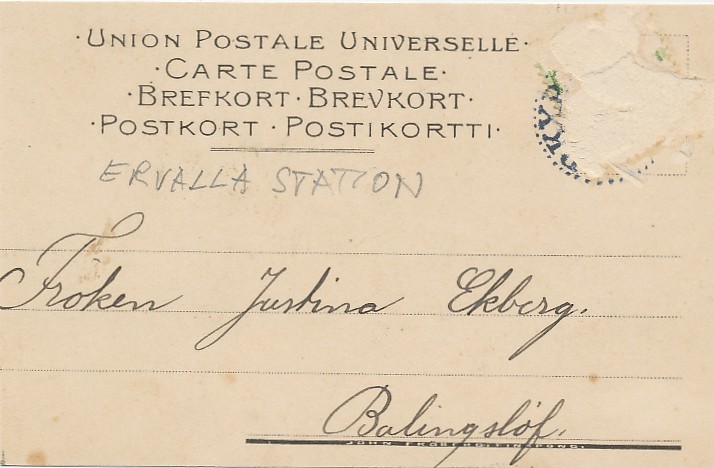 ·UNION POSTALE UNIVERSELLE·
·CARTE POSTALE·
·BREFKORT·BREVKORT·
·POSTKORT·POSTIKORTTI·
ERVALLA STATION
Froken Justina Ekberg.
Balingslöf.
JOHN FRÖBERG FINSPONG.